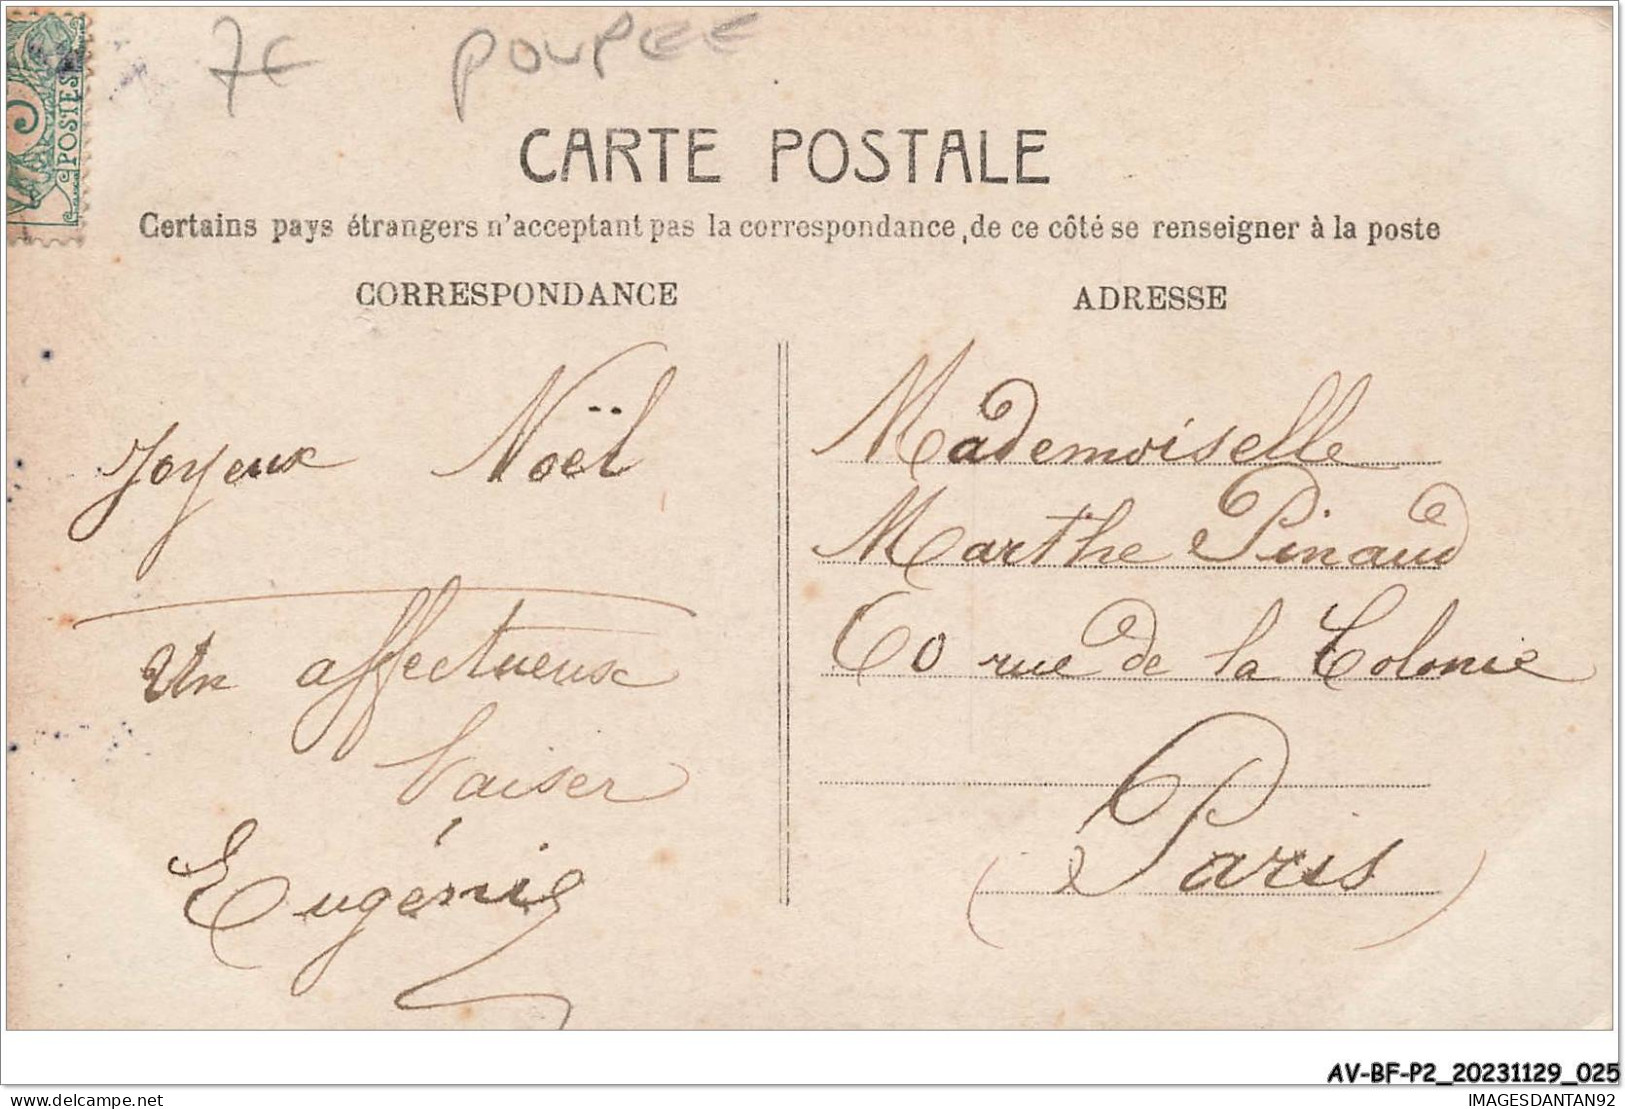 7€ POUPEE
POSTES
CARTE POSTALE
Certains pays étrangers n'acceptant pas la correspondance, de ce côté se renseigner à la poste
CORRESPONDANCE
Joyeux Noël
Un affectueux
baiser
Eugénie
ADRESSE
Mademoiselle
Marthe Pinaud
60 rue de la Colonie
Paris
AV-BF-P2_20231129_025
IMAGESDANTAN92